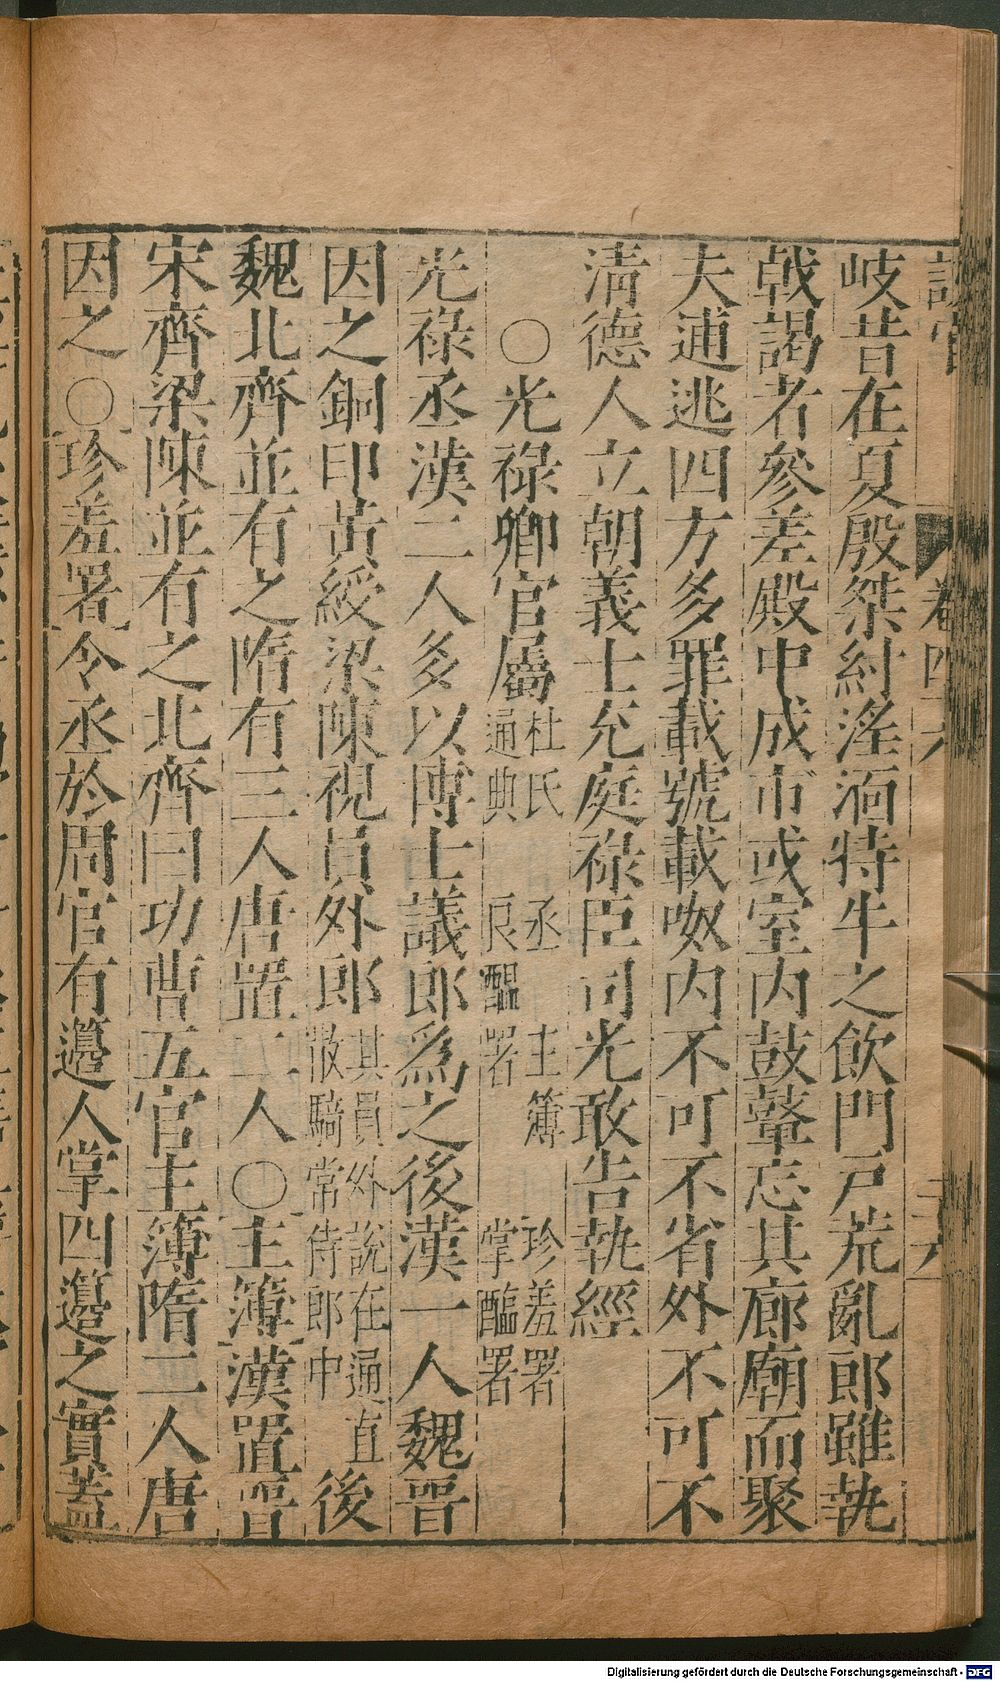 設官 卷四六 二六
岐昔在夏殷桀紂淫湎特牛之飲門戸荒亂郎雖執
戟謁者參差殿中成市或室内鼓鼙忘其廊廟而聚
夫逋逃四方多罪載號載呶内不可不省外不可不
清德人立朝義士充庭祿臣司光敢告執經
○光祿卿官屬杜氏通典 丞 主簿 珍羞署 良醞署 掌醢署
光祿丞漢二人多以博士議郎爲之後漢一人魏晉
因之銅印黃綬梁陳視員外郎其員外說在通直散騎常侍郎中後
魏北齊並有之隋有三人唐置二人○主簿漢置晉
宋齊梁陳並有之北齊曰功曹五官主簿隋二人唐
因之○珍羞署令丞於周官有籩人掌四籩之實蓋
Digitalisierung gefördert durch die Deutsche Forschungsgemeinschaft - DFG